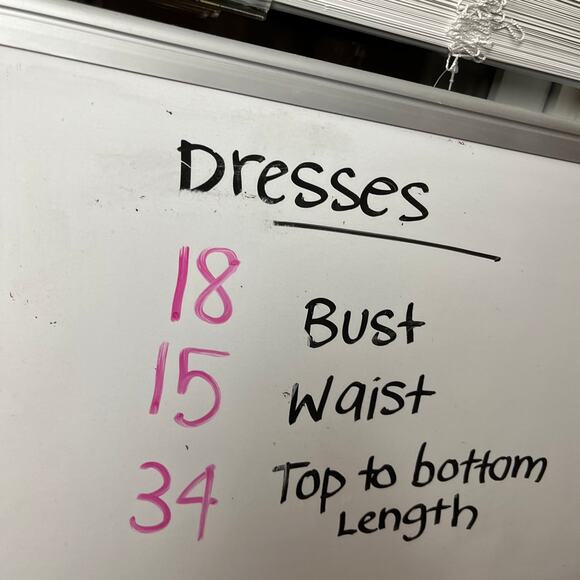 Dresses
18 Bust
15 Waist
34 Top to bottom
Length